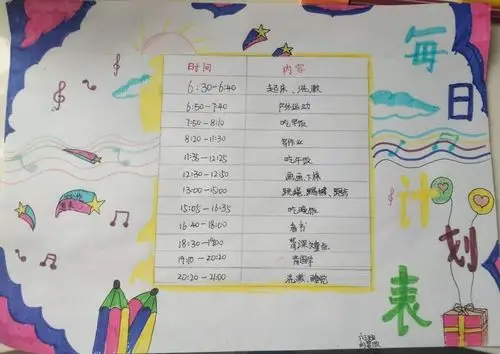 每日计划表
时间 内容
6:30-6:40 起床、洗漱
6:50-7:40 户外运动
7:50-8:10 吃早饭
8:20-11:30 写作业
11:35-12:25 吃午饭
12:30-12:50 画画、下棋
13:00-15:00 跳绳、踢毽、跑步
15:05-16:35 吃晚饭
16:40-18:00 看书
18:30-19:00
19:10-20:20 背国学
20:20-21:00 洗漱、睡觉